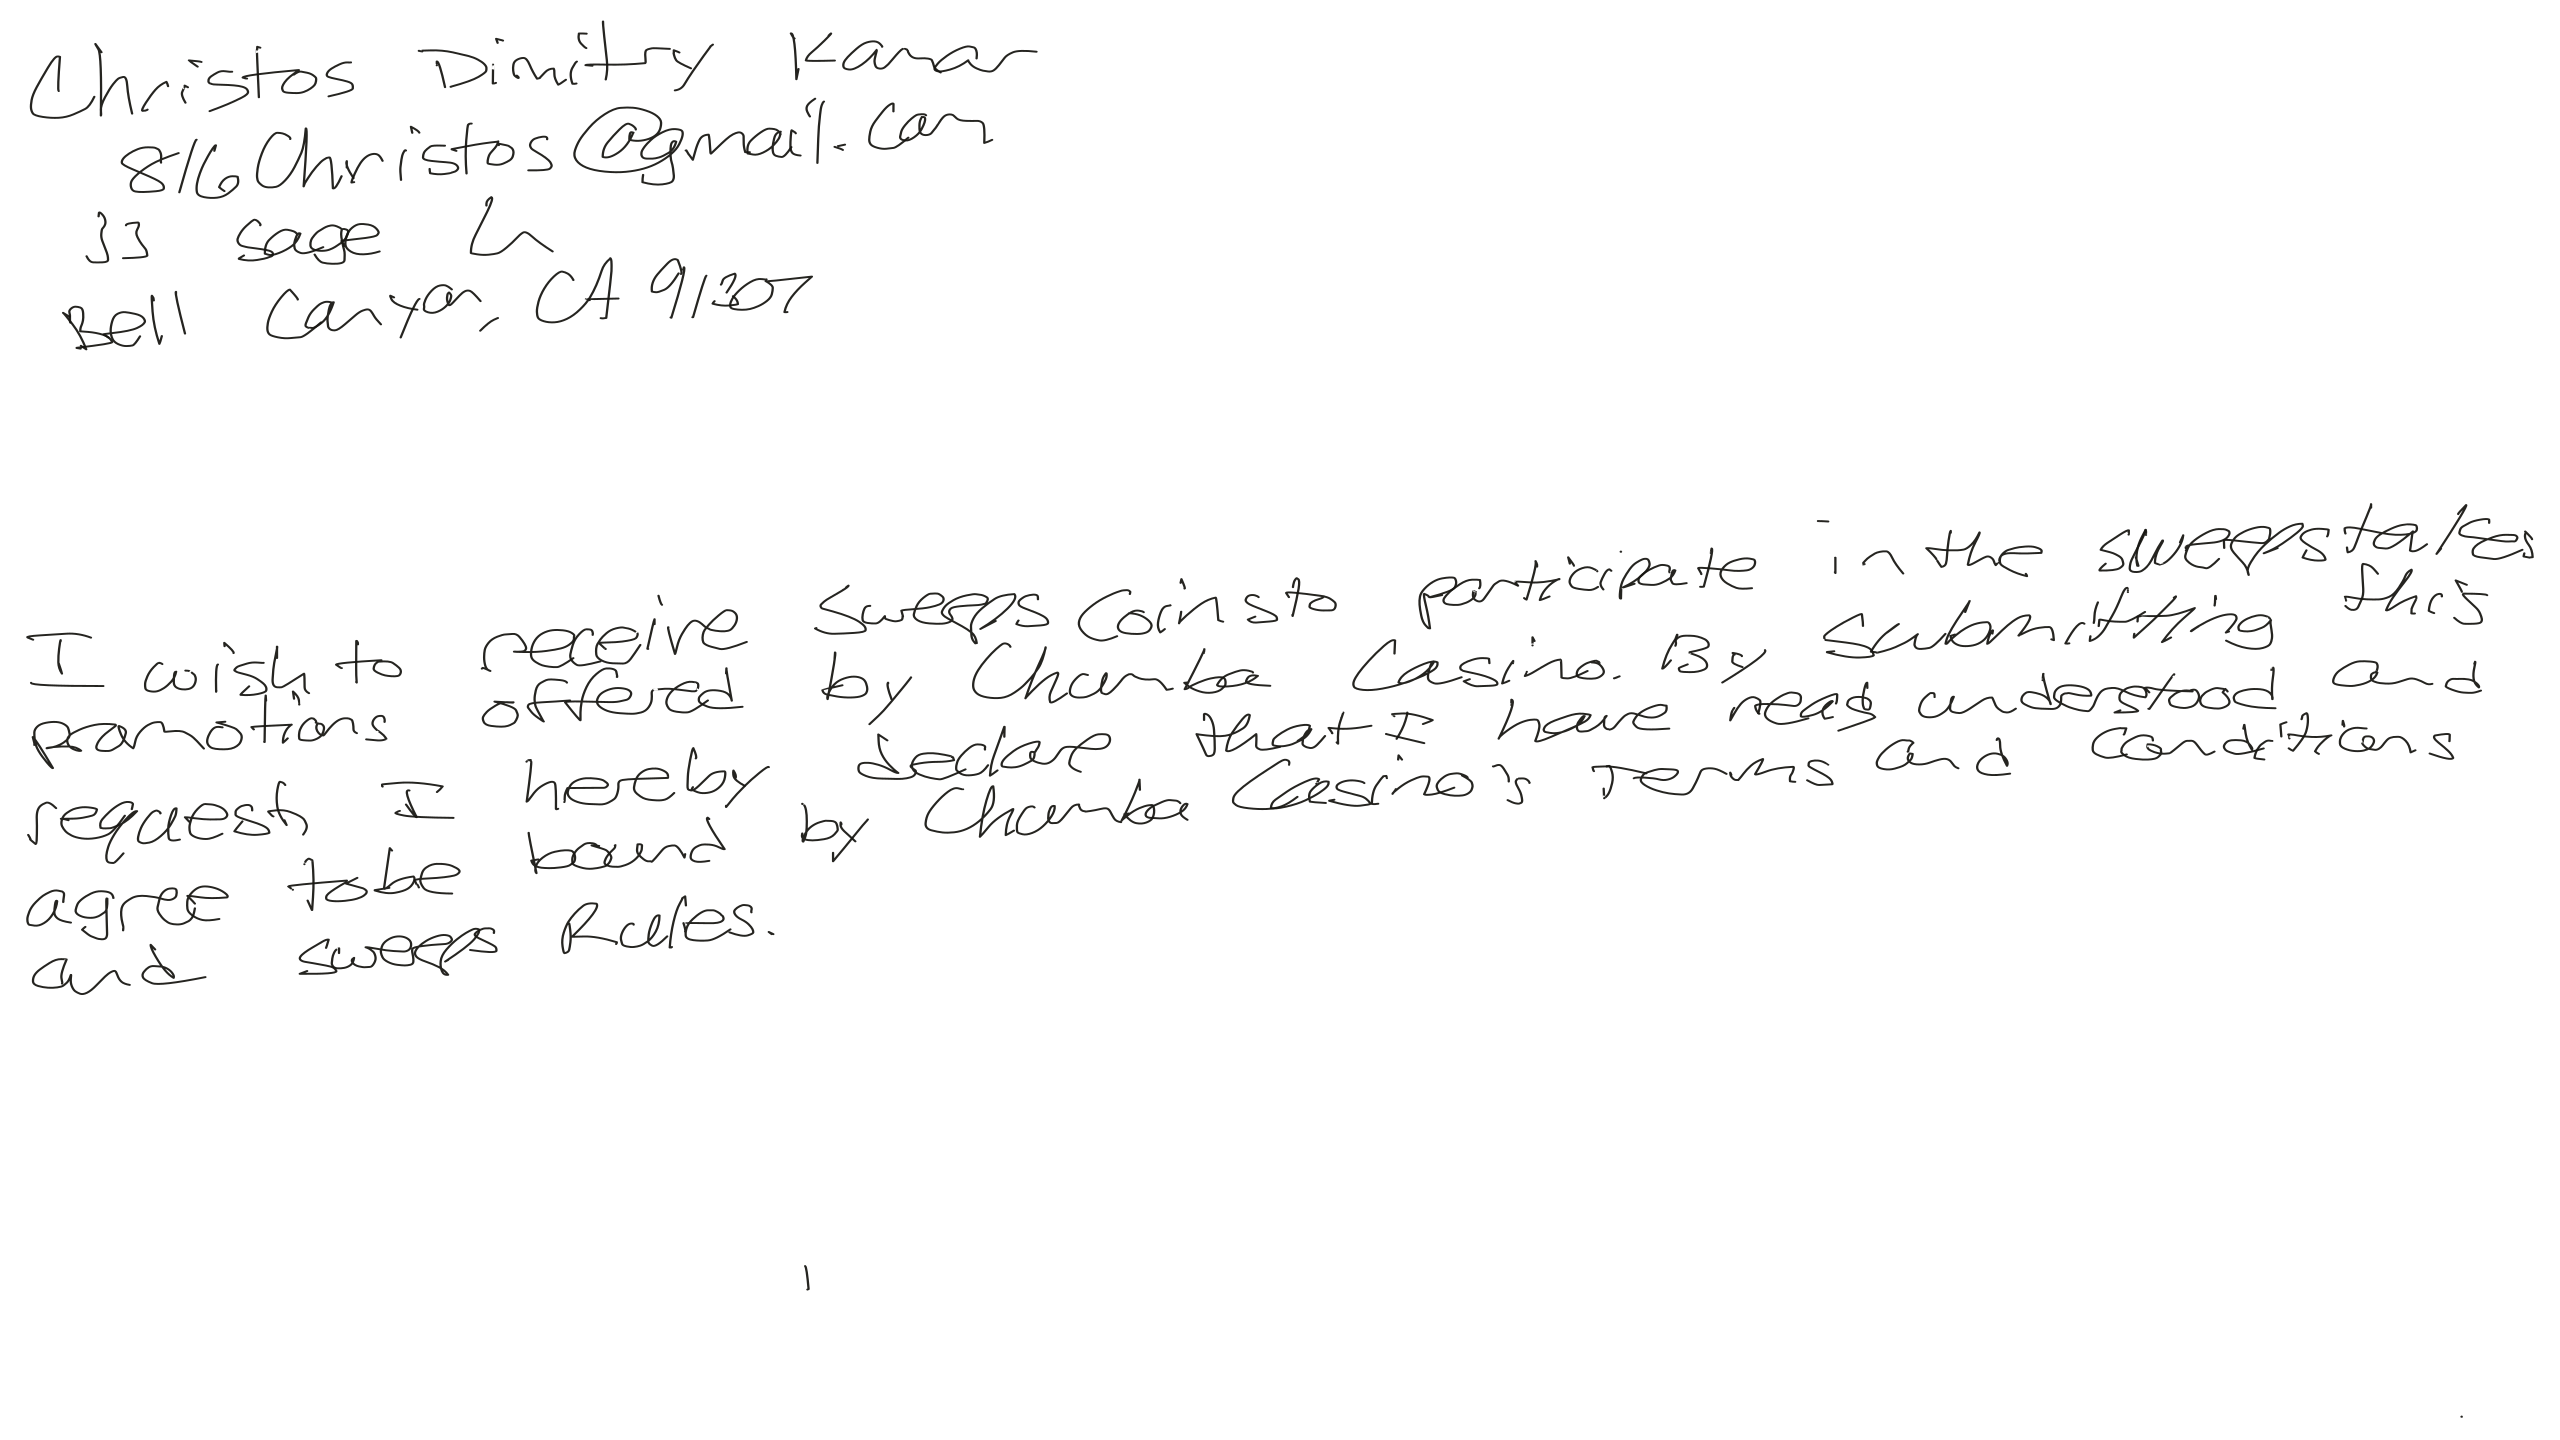 Christos Dimitry Kamar
816Christos@gmail.com
33 Sage Ln
Bell Canyon, CA 91307
I wish to receive Sweeps Coins to participate in the sweepstakes
promotions offered by Chumba Casino. By submitting this
request, I hereby declare that I have read understood and
agree to be bound by Chumba Casino's Terms and Conditions
and Sweeps Rules.